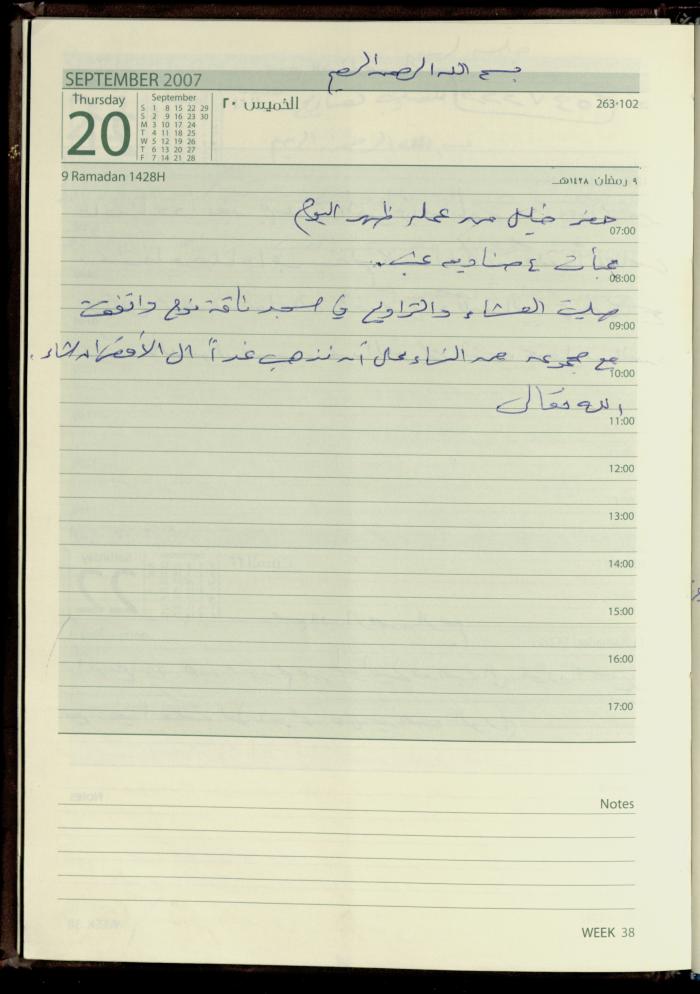 بسم الله الرحمن الرحيم
SEPTEMBER 2007
Thursday
20
September
S 1 8 15 22 29
S 2 9 16 23 30
M 3 10 17 24
T 4 11 18 25
W 5 12 19 26
T 6 13 20 27
F 7 14 21 28
الخميس ٢٠
263-102
9 Ramadan 1428H
٩ رمضان ١٤٢٨هـ
حضر خليل من عمله ظهر اليوم
07:00
عبأت ٤ صناديق عنب..
08:00
صليت العشاء والتراويح في مسجد ناقة نوح واتفقت
09:00
مع مجموعة من النساء على أن نذهب غداً الى الأقصى ان شاء
10:00
الله تعالى
11:00
12:00
13:00
14:00
15:00
16:00
17:00
Notes
WEEK 38